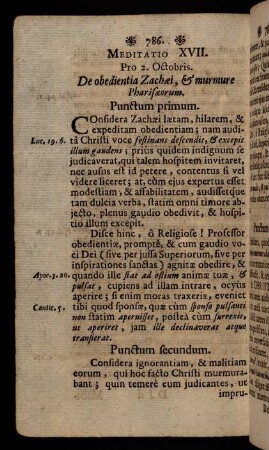 786.
MEDITATIO XVII.
Pro 2. Octobris.
De obedientia Zachæi, & murmure
Pharisæorum.
Punctum primum.
COnsidera Zachæi lætam, hilarem, &
expeditam obedientiam; nam audi-
Luc. 19. 6. tâ Christi voce festinans descendit, & excepit
illum gaudens; priùs quidem indignum se
judicaverat, qui talem hospitem invitaret,
nec ausus est id petere, contentus si vel
videre liceret; at, cùm ejus expertus esset
modestiam, & affabilitatem, audissetque
tam dulcia verba, statim omni timore ab-
jecto, plenus gaudio obedivit, & hospi-
tio illum excepit.
Disce hinc, ô Religiose! Professor
obedientiæ, promptè, & cum gaudio vo-
ci Dei (sive per jussa Superiorum, sive per
inspirationes sanctas) agnitæ obedire, &
Apoc. 3. 20. quando ille stat ad ostium animæ tuæ, &
pulsat, cupiens ad illam intrare, ocyùs
aperire; si enim moras traxeris, eveniet
Cantic. 5. tibi quod sponsæ, quæ cùm sponso pulsanti
non statim aperuisset, posteà cùm surrexit,
ut aperiret, jam ille declinaverat atque
transierat.
Punctum secundum.
Considera ignorantiam, & malitiam
eorum, qui hoc facto Christi murmura-
bant; quin temerè eum judicantes, ut
impru-